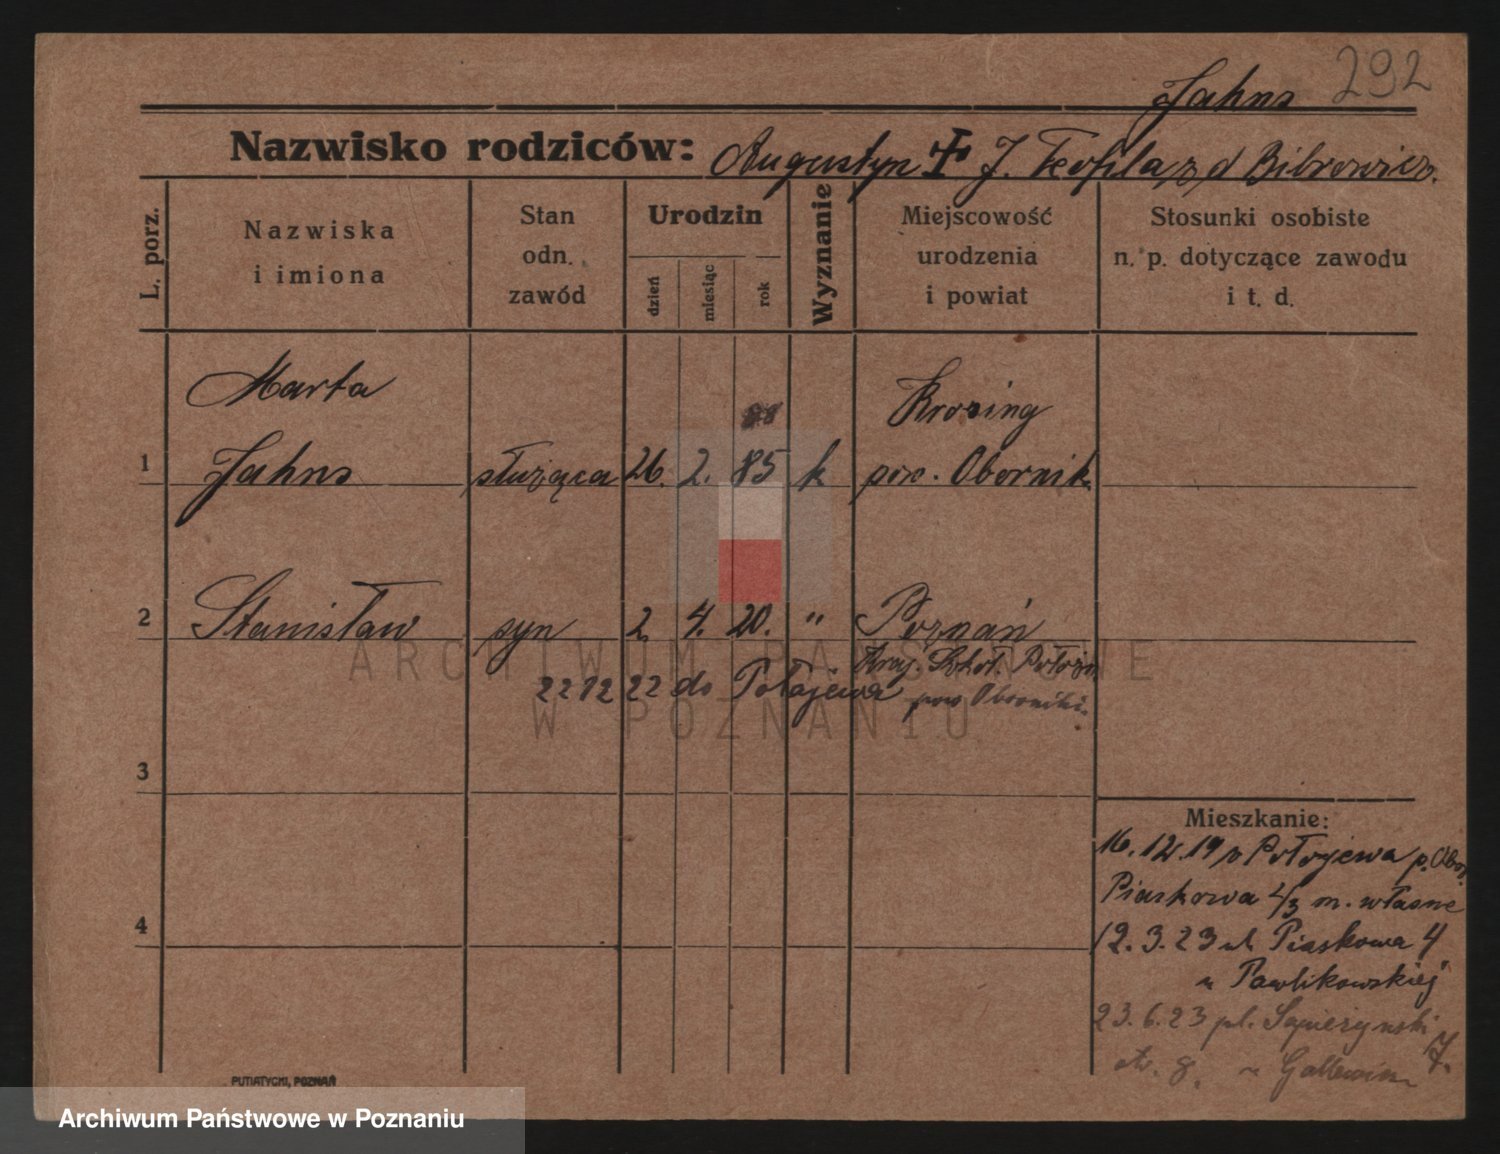 292
Jahns
Nazwisko rodziców: Augustyn + J. Teofila z d Bibrowicz.
L. porz.
Nazwiska
i imiona
Stan
odn.
zawód
Urodzin
dzień
miesiąc
rok
Wyznanie
Miejscowość
urodzenia
i powiat
Stosunki osobiste
n. p. dotyczące zawodu
i t. d.
Marta Krosing
1 Jahns służąca 26. 2. 85 k pow. Obornik
2 Stanisław syn 2 4. 20. " Poznań
Kraj. Szkoł. Położn
22 12 22 do Połajewa pow Oborniki
3
4
Mieszkanie:
16.12.19 z Połajewa p. Obor.
Piaskowa 2/3 m. własne
12.3.23 ul. Piaskowa 4
u Pawlikowskiej
23.6.23 pl. Sapieżyński 7.
u
PUTIATYCKI, POZNAŃ
ARCHIWUM PAŃSTWOWE
W POZNANIU
Archiwum Państwowe w Poznaniu